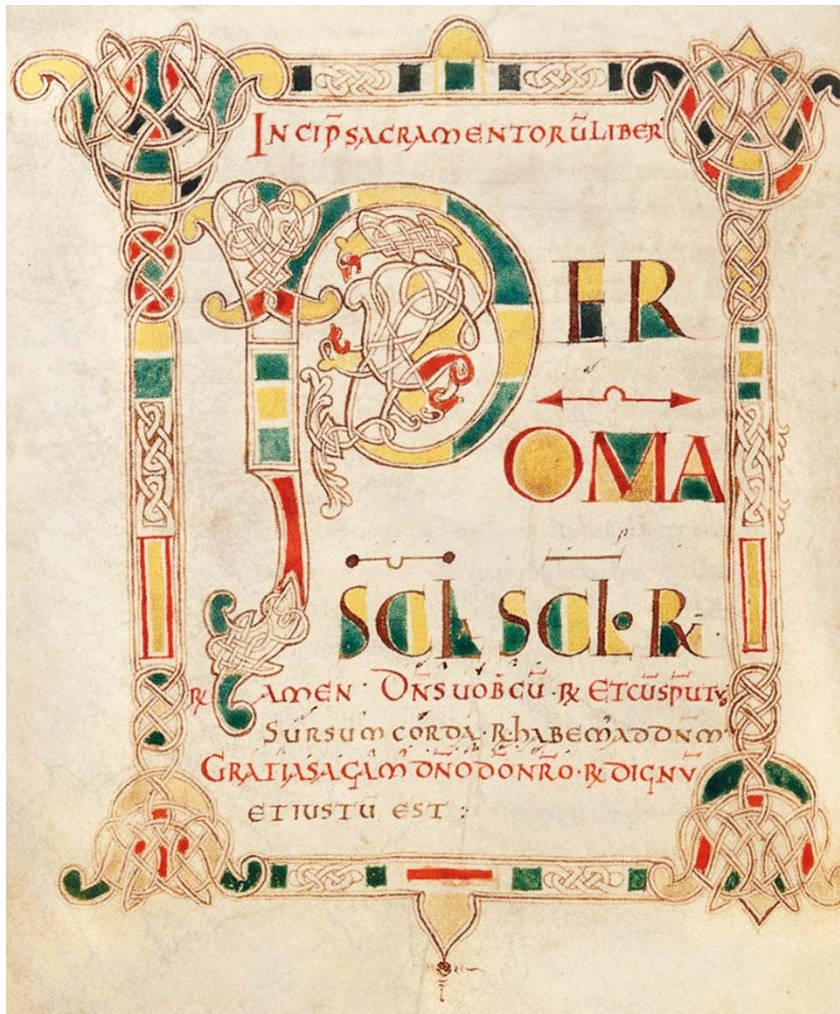 INCIP̄ SACRAMENTORŪ LIBER
PER
OM̄A
SCLA SCLO·R̄
℟ AMEN · D̄N̄S UOBCŪ · ℟ ET CŪ SP̄U TŪO
SURSUM CORDA · ℟ HABEM̄ AD DN̄M
GRATIAS AGAM̄ DN̄O DO NR̄O · ℟ DIGNŪ
ET IUSTŪ EST :